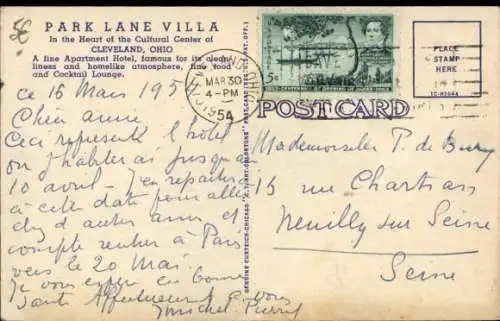 PARK LANE VILLA
In the Heart of the Cultural Center of
CLEVELAND, OHIO
A fine Apartment Hotel, famous for its clean-
liness and homelike atmosphere, fine food
and Cocktail Lounge.
ce 16 Mars 1954
Chère amie
Ceci représente l'hotel
où j'habiterais jusqu'au
10 avril - J'en repartirai
à cette date pour aller
chez d'autres amis et
compte rentrer à Paris
vers le 20 Mai.
Je vous espère en bonne
santé Affectueusement à vous
Michel
CLEVELAND, OHIO
MAR 30
4-PM
1954
5¢
CENTENNIAL OF OPENING OF JAPAN
PLACE
STAMP
HERE
POST CARD
GENUINE CURTEICH-CHICAGO
Mademoiselle P. de Bury
15 rue Chartran
Neuilly sur Seine
Seine